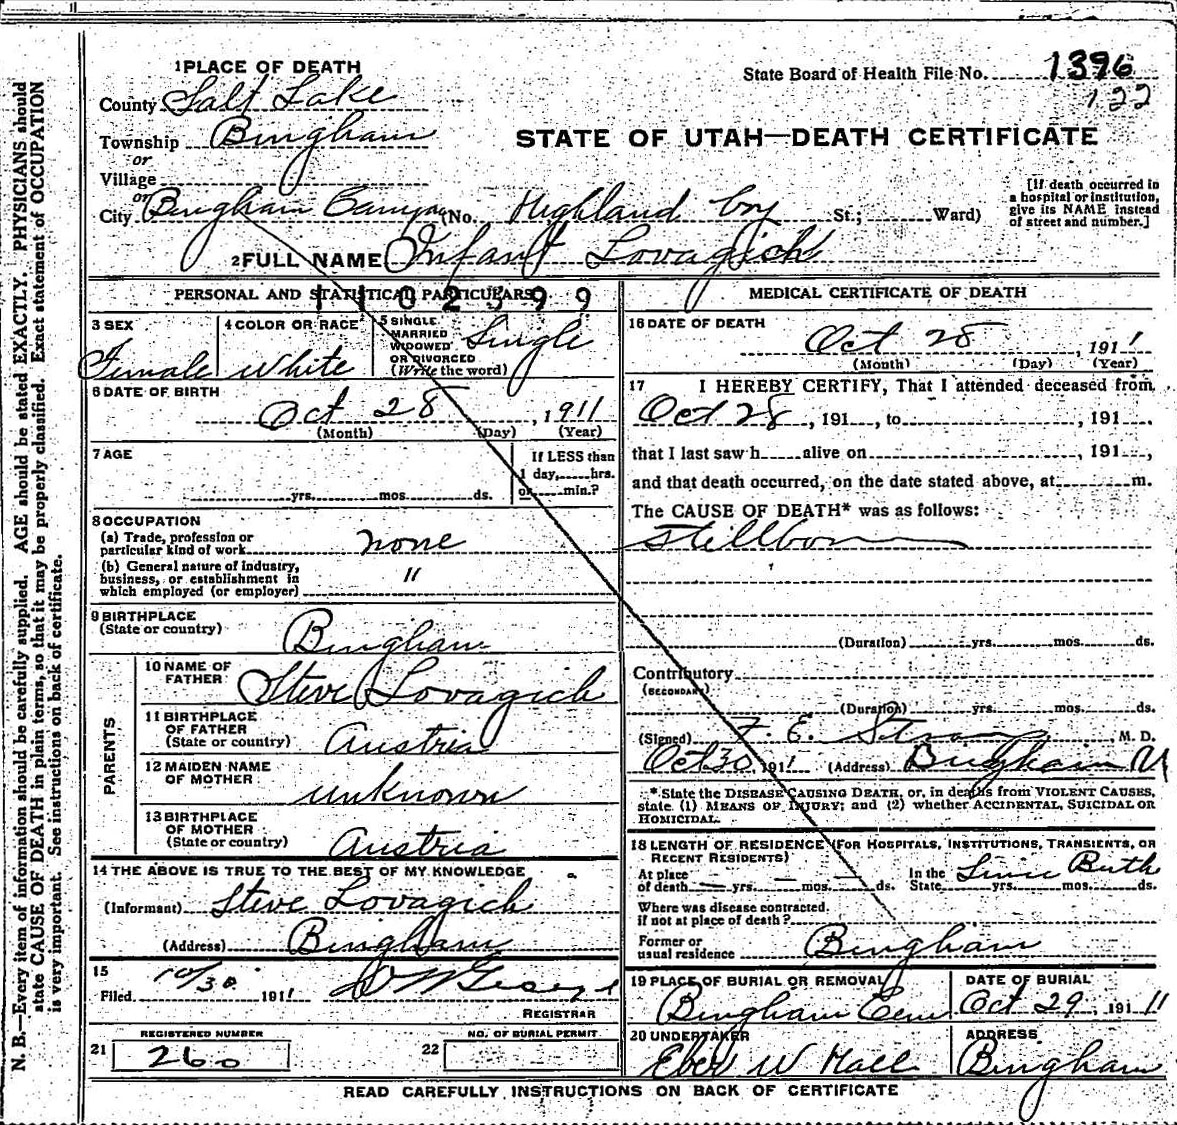 1 PLACE OF DEATH
County Salt Lake
Township Bingham
or
Village
or
City Bingham Canyon (No. Highland Boy St.; Ward)
2 FULL NAME Infant Lovagich
State Board of Health File No. 1396
122
STATE OF UTAH—DEATH CERTIFICATE
[If death occurred in
a hospital or institution,
give its NAME instead
of street and number.]
PERSONAL AND STATISTICAL PARTICULARS
3 SEX
Female
4 COLOR OR RACE
White
5 SINGLE
MARRIED
WIDOWED
OR DIVORCED
(Write the word)
Single
6 DATE OF BIRTH
Oct 28, 1911
(Month) (Day) (Year)
7 AGE
yrs. mos. ds.
If LESS than
1 day, hrs.
or min.?
8 OCCUPATION
(a) Trade, profession or
particular kind of work none
(b) General nature of industry,
business, or establishment in
which employed (or employer) "
9 BIRTHPLACE
(State or country) Bingham
PARENTS
10 NAME OF
FATHER Steve Lovagich
11 BIRTHPLACE
OF FATHER
(State or country) Austria
12 MAIDEN NAME
OF MOTHER unknown
13 BIRTHPLACE
OF MOTHER
(State or country) Austria
14 THE ABOVE IS TRUE TO THE BEST OF MY KNOWLEDGE
(Informant) Steve Lovagich
(Address) Bingham
15
Filed 10/30 1911
REGISTRAR
REGISTERED NUMBER
21 260
NO. OF BURIAL PERMIT
22
MEDICAL CERTIFICATE OF DEATH
16 DATE OF DEATH
Oct 28, 1911
(Month) (Day) (Year)
17 I HEREBY CERTIFY, That I attended deceased from
Oct 28, 191 , to , 191 .
that I last saw h alive on , 191 ,
and that death occurred, on the date stated above, at m.
The CAUSE OF DEATH* was as follows:
Stillborn
(Duration) yrs. mos. ds.
Contributory
(SECONDARY)
(Duration) yrs. mos. ds.
(Signed) F. E. M. D.
Oct 30, 1911 (Address) Bingham U
* State the DISEASE CAUSING DEATH, or, in deaths from VIOLENT CAUSES,
state (1) MEANS OF INJURY; and (2) whether ACCIDENTAL, SUICIDAL OR
HOMICIDAL.
18 LENGTH OF RESIDENCE (FOR HOSPITALS, INSTITUTIONS, TRANSIENTS, OR
RECENT RESIDENTS)
At place
of death yrs. mos. ds.
In the
State yrs. mos. ds.
Since Birth
Where was disease contracted,
if not at place of death?
Former or
usual residence Bingham
19 PLACE OF BURIAL OR REMOVAL
Bingham Cem
DATE OF BURIAL
Oct 29, 1911
20 UNDERTAKER
Eber W Hall
ADDRESS
Bingham
READ CAREFULLY INSTRUCTIONS ON BACK OF CERTIFICATE
N. B.—Every item of information should be carefully supplied. AGE should be stated EXACTLY. PHYSICIANS should
state CAUSE OF DEATH in plain terms, so that it may be properly classified. Exact statement of OCCUPATION
is very important. See instructions on back of certificate.